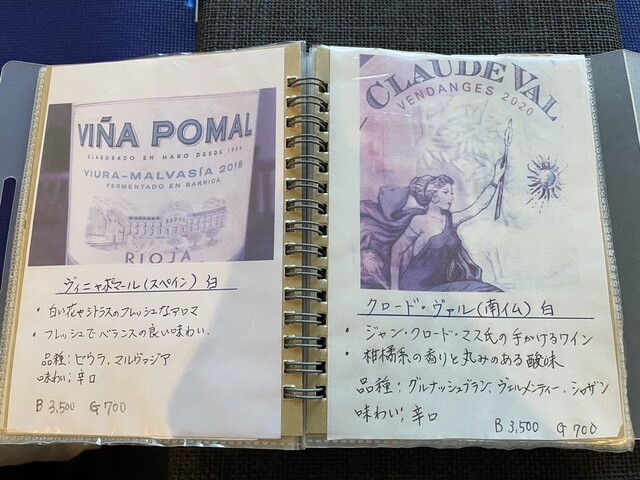 VIÑA POMAL
ELABORADO EN HARO DESDE 1908
VIURA-MALVASÍA 2018
FERMENTADO EN BARRICA
RIOJA
ヴィニャポマール(スペイン) 白
・白い花やシトラスのフレッシュなアロマ
・フレッシュでバランスの良い味わい.
品種:ビウラ、マルヴァジア
味わい:辛口
B 3,500 G 700
CLAUDE VAL
VENDANGES 2020
クロード・ヴァル(南仏) 白
・ジャン・クロード・マス氏の手がけるワイン
・柑橘系の香りと丸みのある酸味
品種:グルナッシュブラン、ヴェルメンティー、シャサン
味わい:辛口
B 3,500 G 700